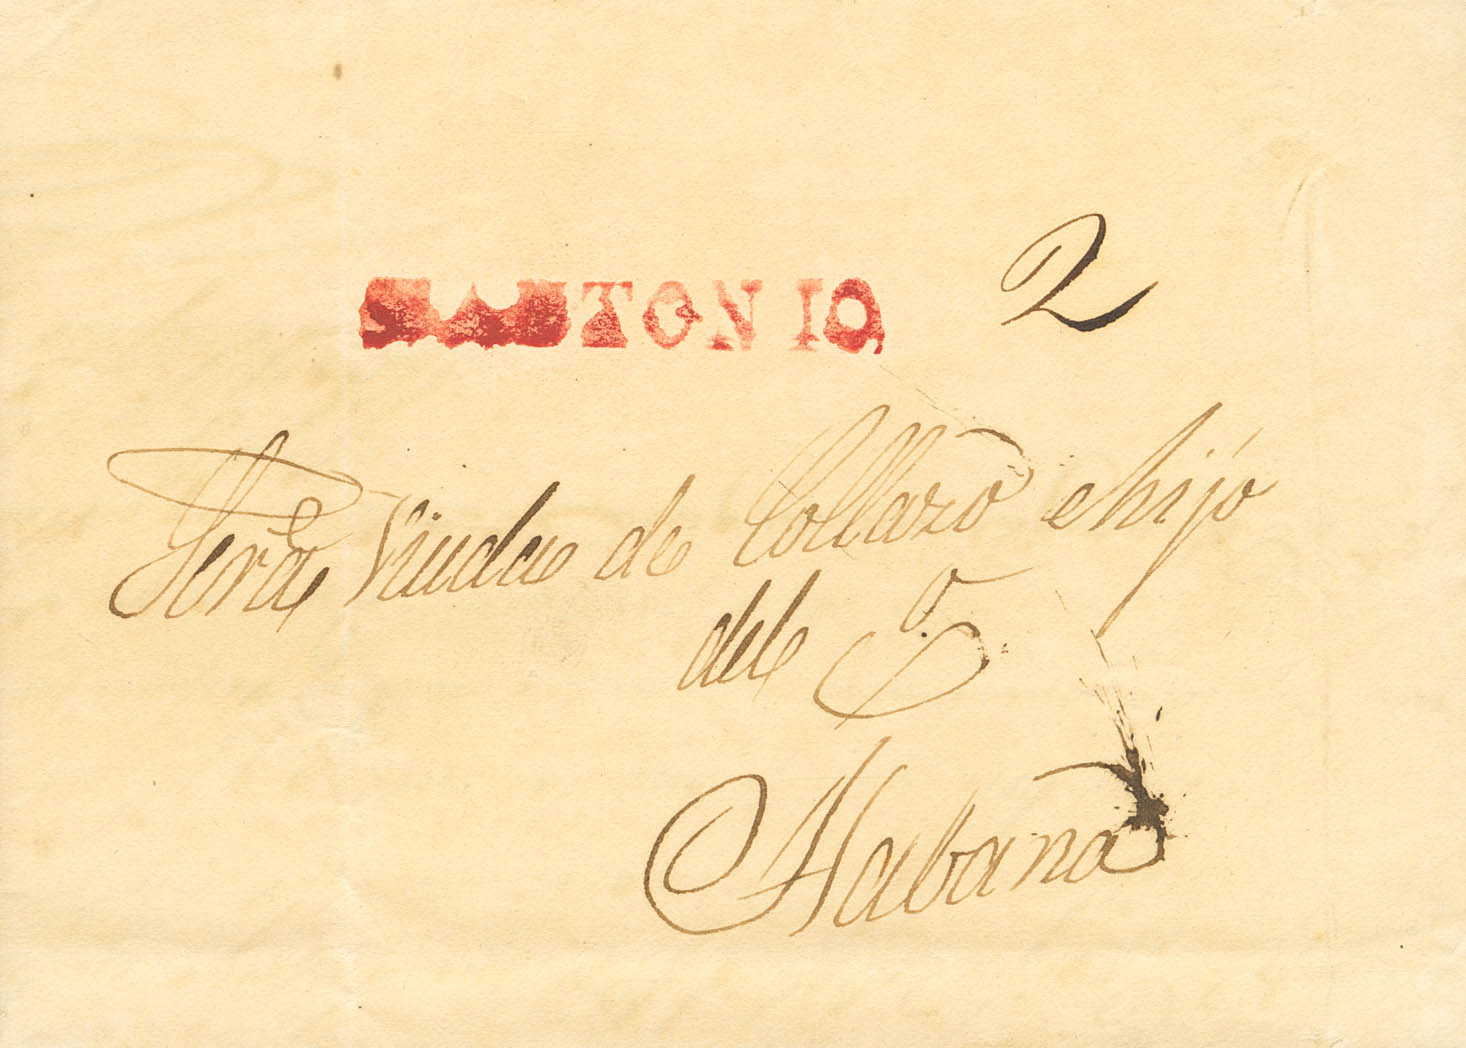 S.ANTONIO,
2
Serã Viuda de Collazo e hijo
del Co.
Habana